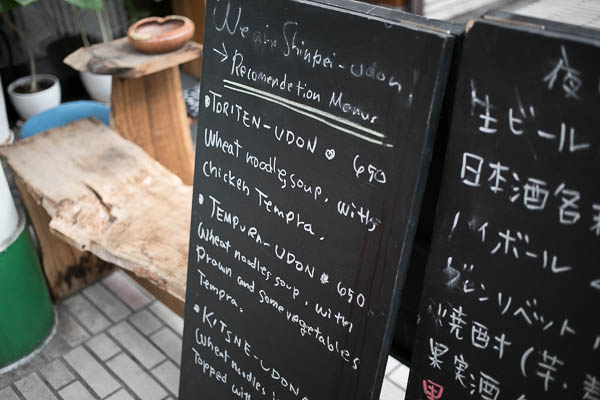 We are Shinpei-udon
→Recomendetion Menus
•TORITEN-UDON • 650
Wheat noodles soup, with
chicken Tempra.
•TEMPURA-UDON • 650
Wheat noodles soup, with
Prawn and some vegetables
Tempra.
•KITSNE-UDON
Wheat noodles
Topped with
夜
生ビール
日本酒各
ハイボール
グレンリベット
焼酎 (芋、
果実酒